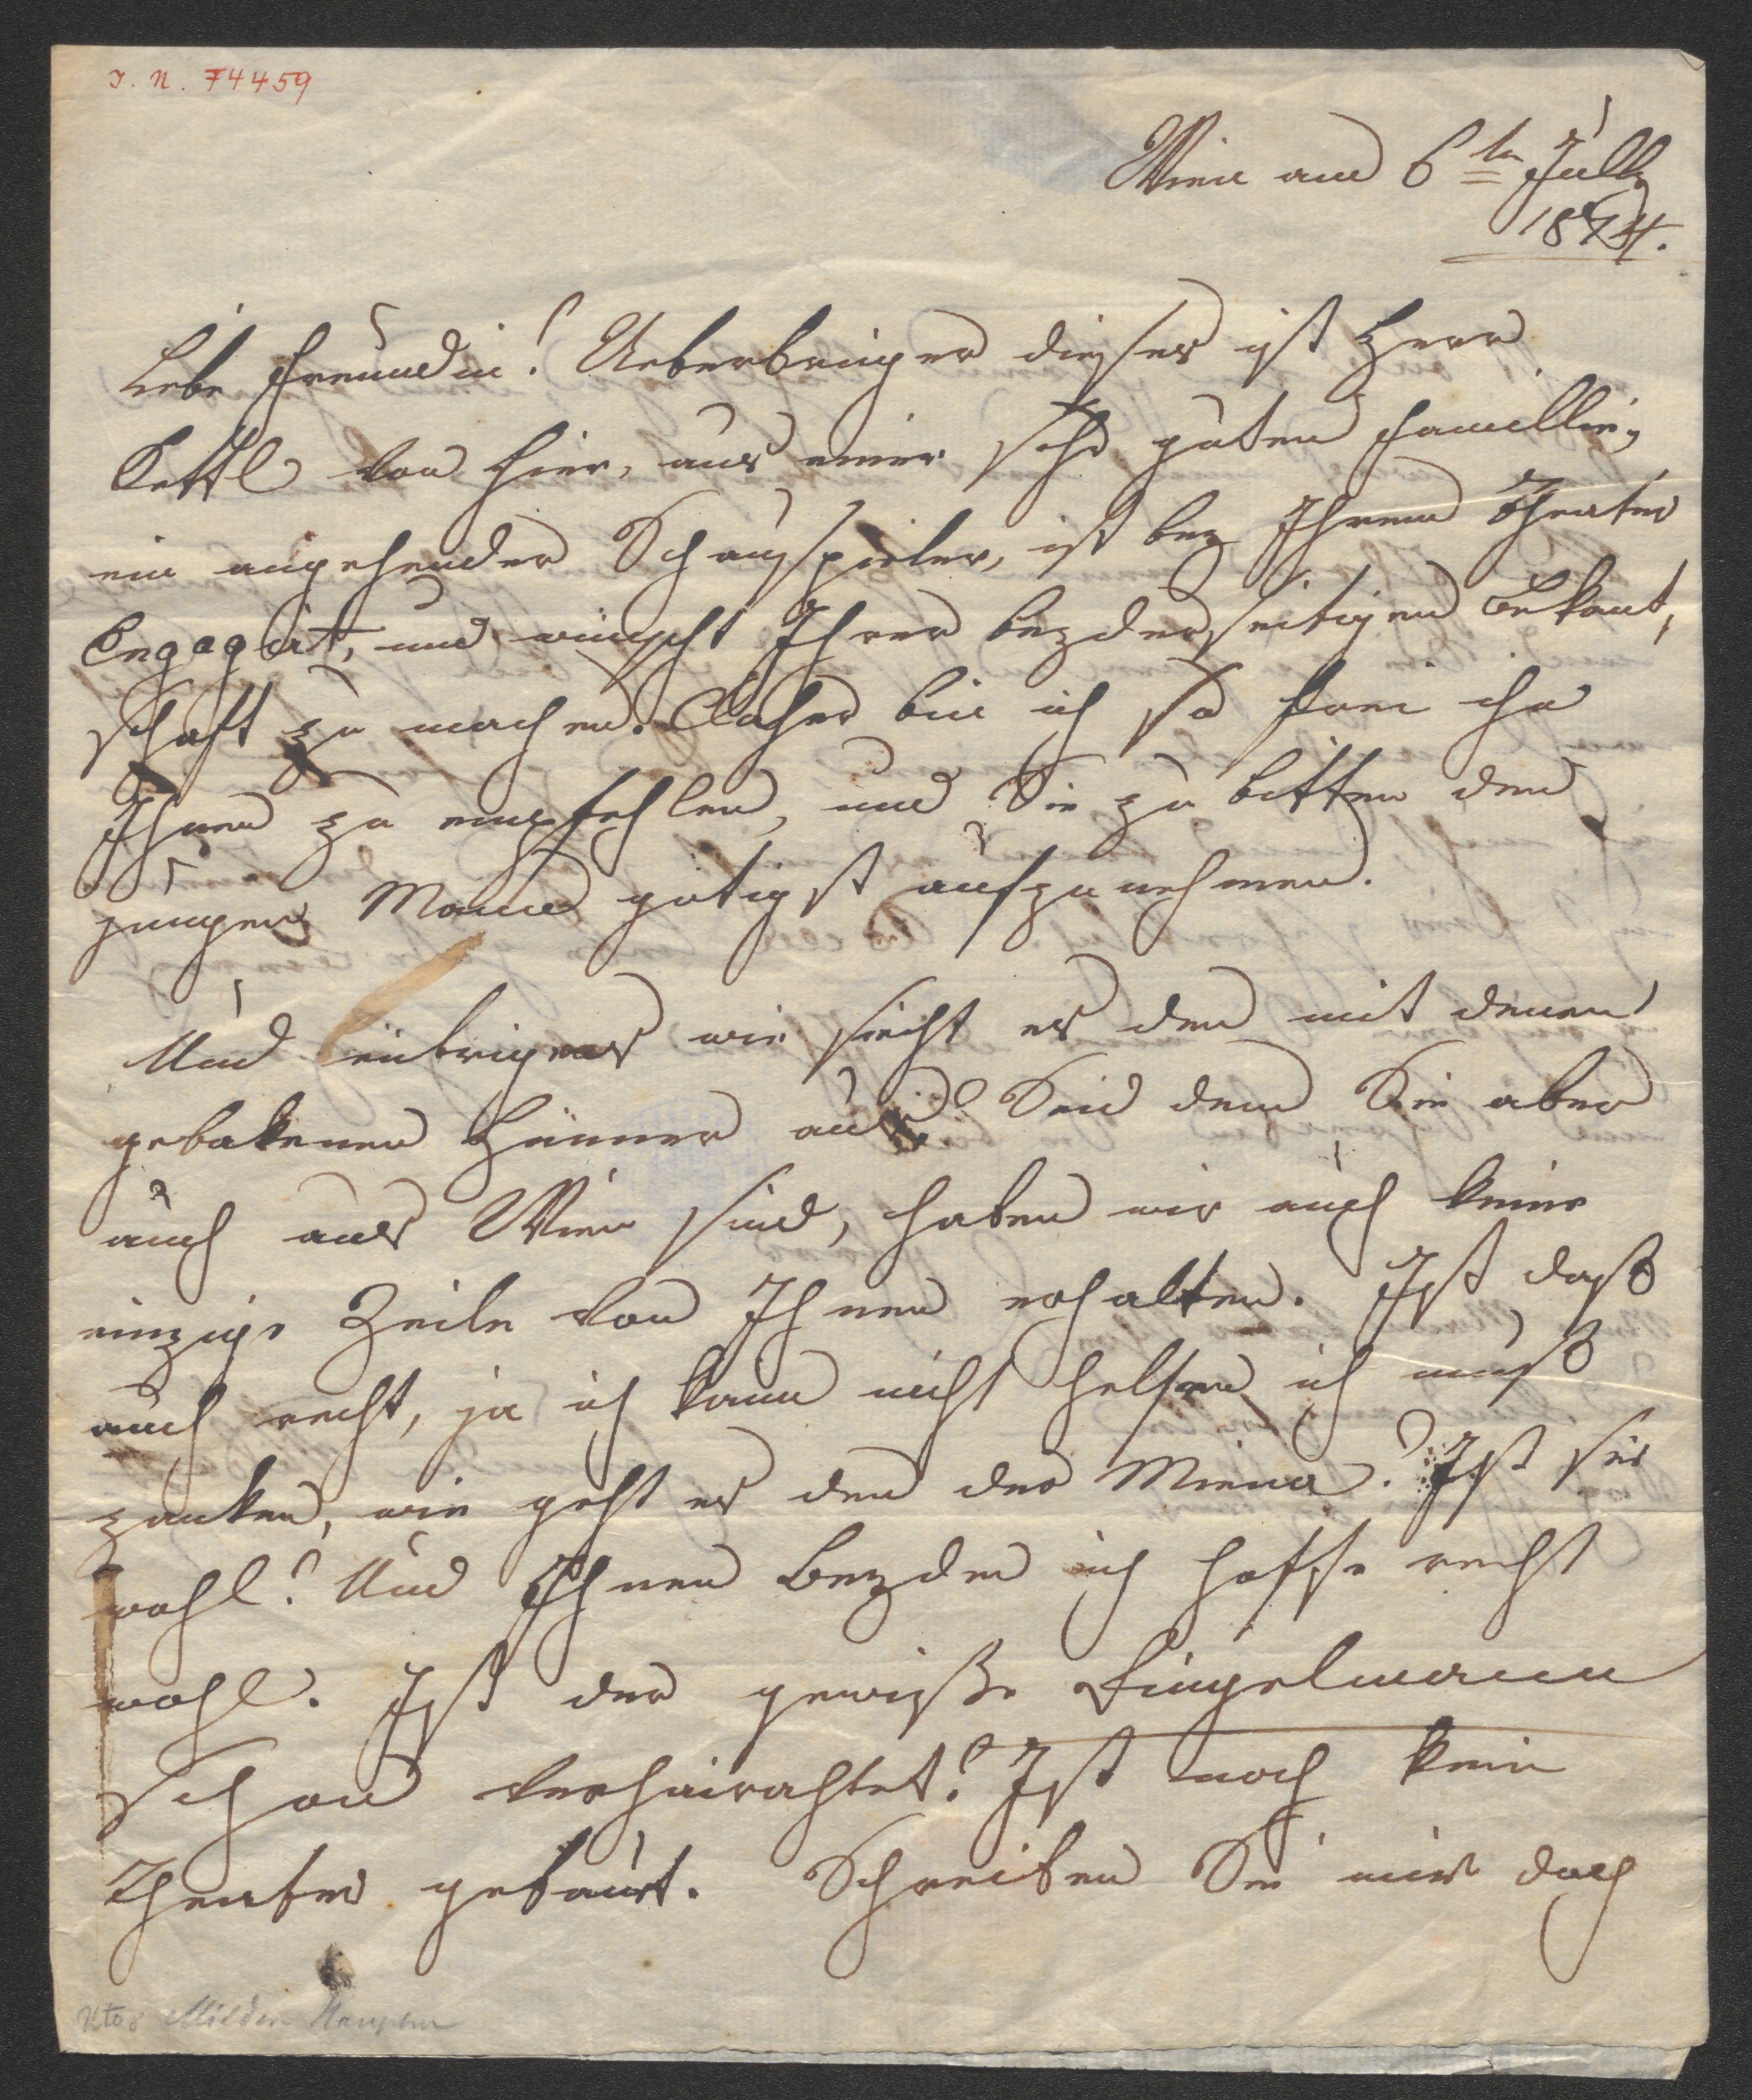 I. N. 74459
Wien am 6ten Jully
1824.
Liebe Freundin! Ueberbringer dieses ist Herr
Kettl von hier, aus einer sehr guten Famillie,
ein angehender Schauspieler, ist bey Ihrem Theater
Engagirt, und wünscht Ihrer beyderseitigen Bekant,
schaft zu machen. Daher bin ich so frei ihn
Ihnen zu empfehlen, und Sie zu bitten den
jungen Mann gütigst aufzunehmen.
Und übrigens wie sieht es den mit denen
gebakenen Hünner aus? Seid dem Sie aber
auch aus Wien sind, haben wir auch keine
einzige Zeile von Ihnen erhalten. Ist daß
auch recht, ja ich kann nicht helfen ich muß
zanken, wie geht es den der Miena? Ist sie
wohl? Und Ihnen beyden ich hoffe recht
wohl. Ist der gewiße Lingelmann
schon verheirathet? Ist noch kein
Theater gebaut. Schreiben Sie mir doch
Milder Hauptm